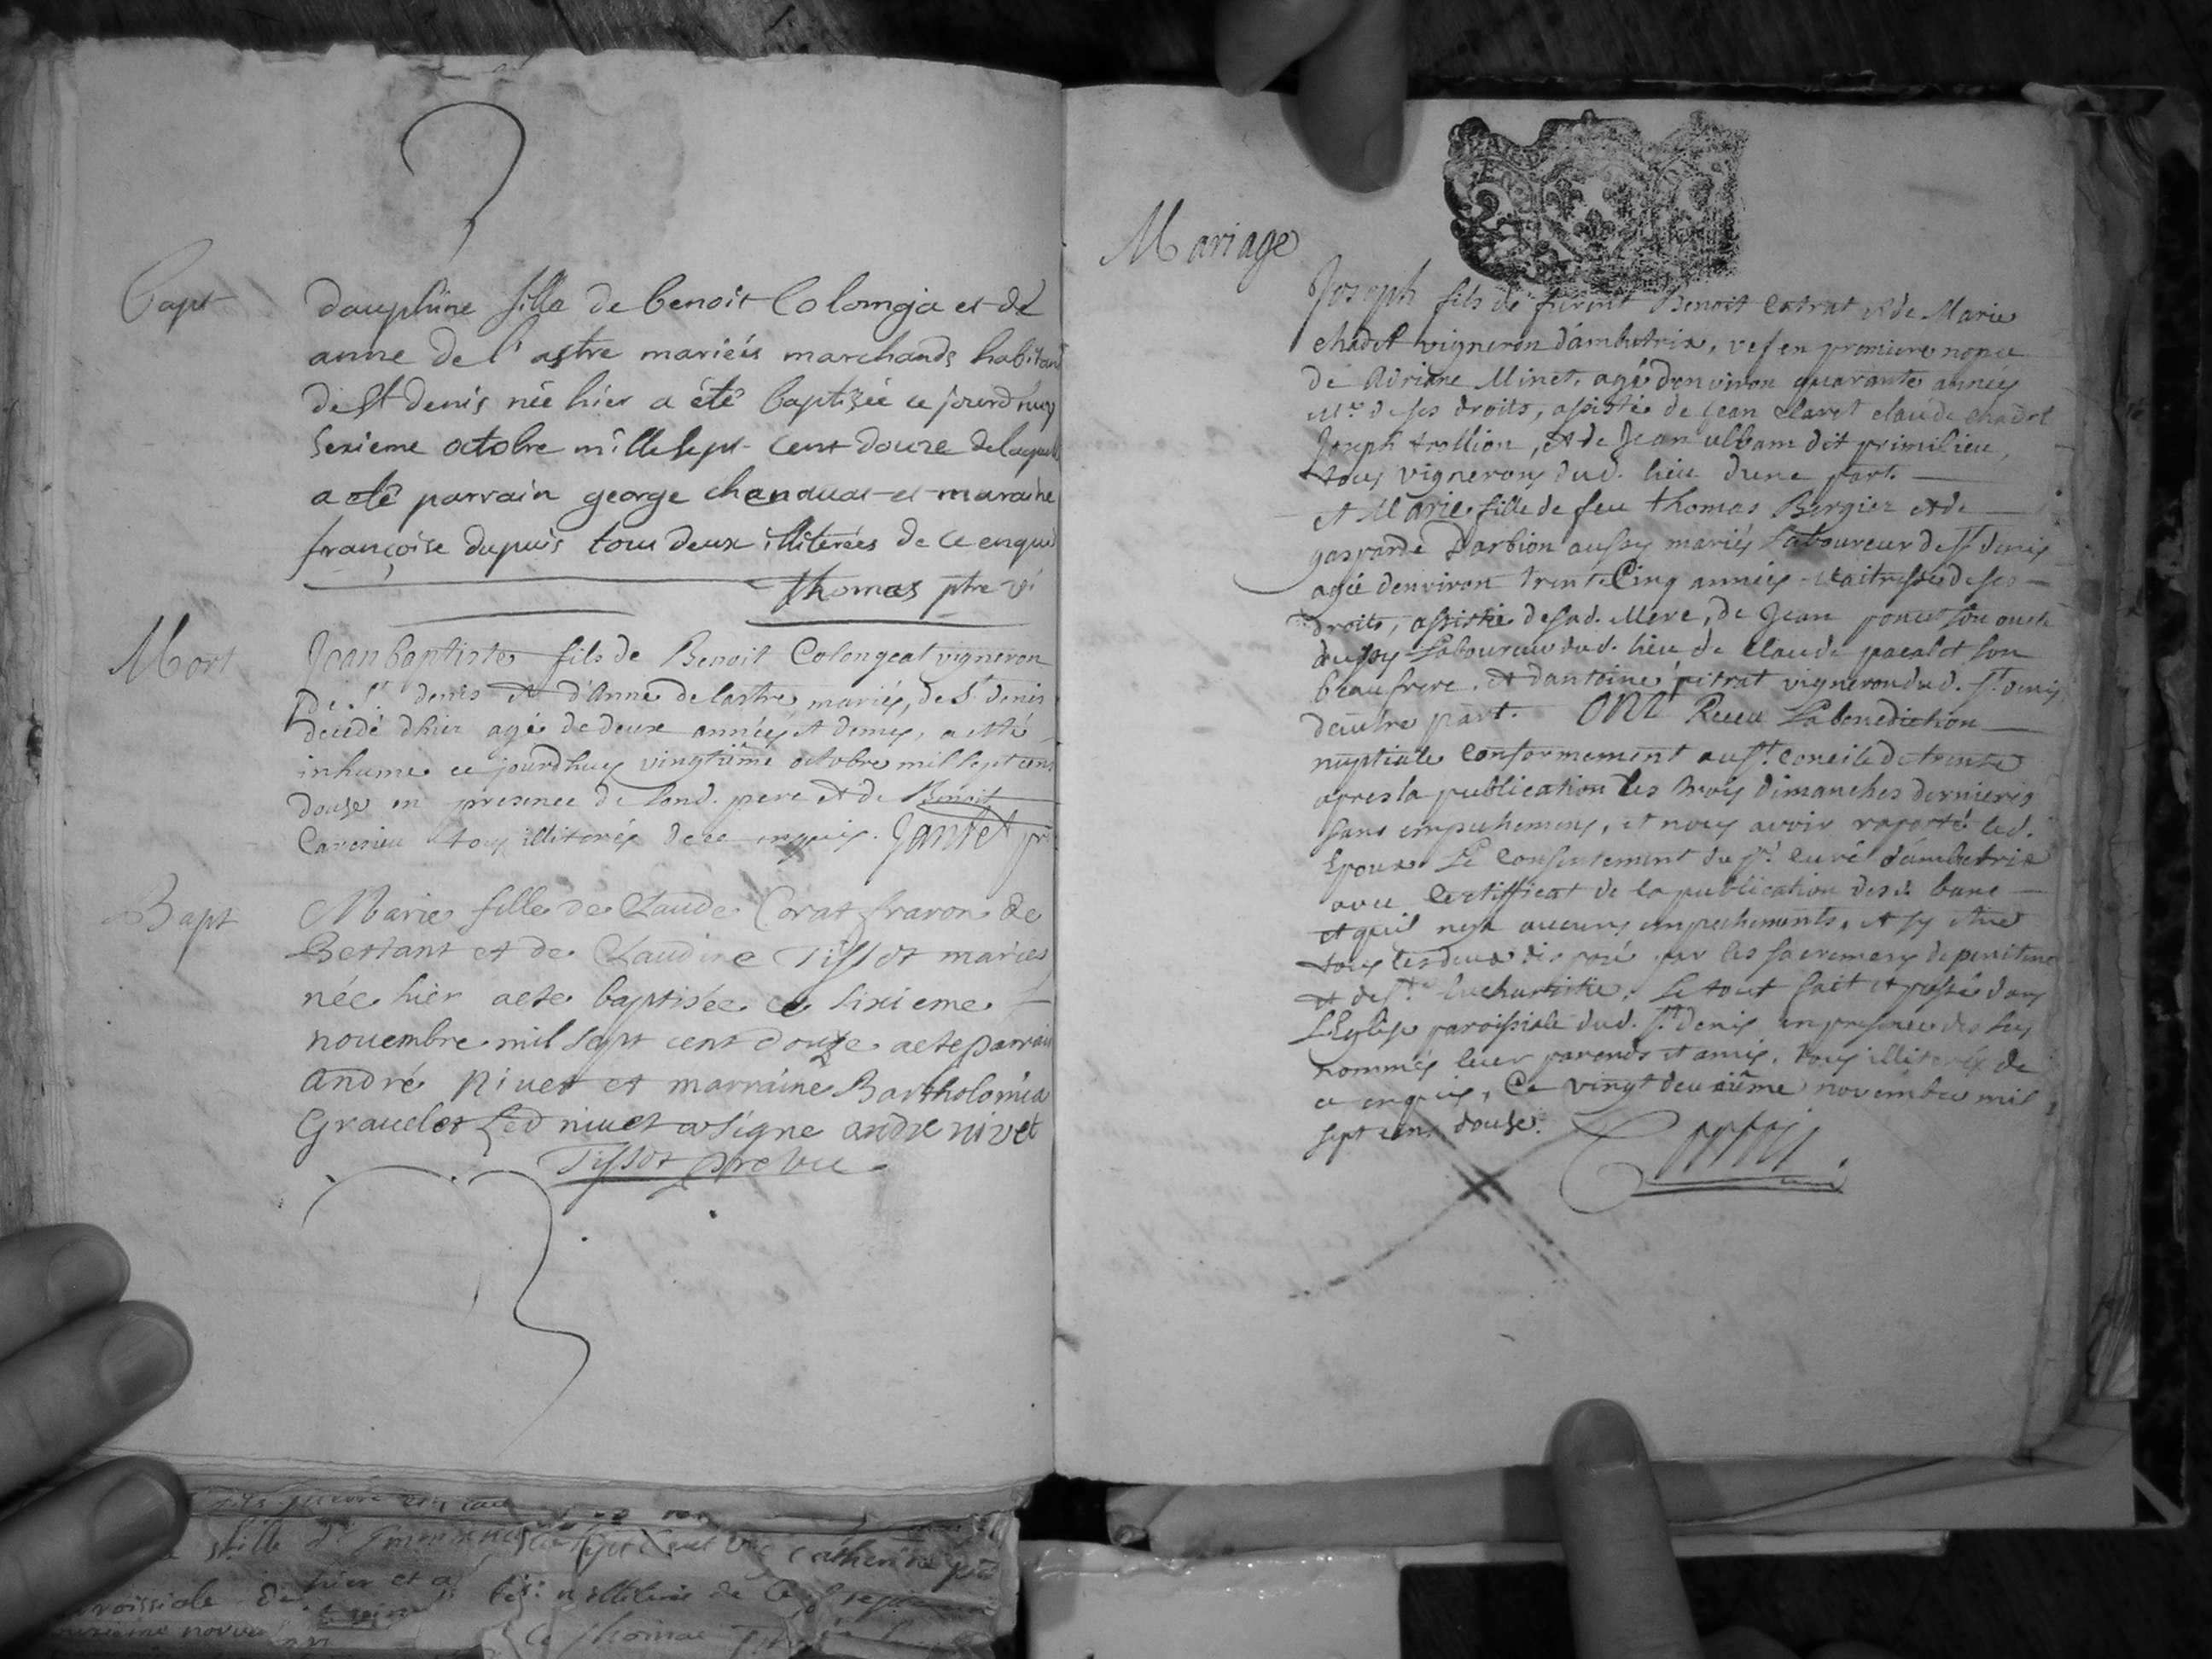 Bapt
dauphine fille de benoit Colomgia et de
anne de l'astre mariéis marchands habitans
de St denis née hier a été baptizée ce jourd'huy
Sezieme octobre mille sept cent douze de laquelle
a eté parrain george chanauas et maraine
françoise dupuis tous deux illiterées de ce enquis
Thomas ptre vi
Mort
Jean baptiste fils de Benoit Colongeat vigneron
de St denis et d'Anne de lastre mariés, de St denis
decedé d'hier agé de deux années et demy, a esté
inhumé ce jourdhuy vingtiême octobre mil sept cens
douse en presence de sond. pere et de Benoit
tous illiterés de ce enquis. Jantet
Bapt
Marie fille de Claude Corat fraron de
Bettant et de Claudine Tissot maries
née hier a ete baptisée ce sixieme
nouembre mil sept cent douze a ete parrain
André Niuet et marraine Bartholomia
Graudet Led niuet a signe andre nivet
Tissot ptre vic
Mariage
Joseph fils de furent Benoit Catrat et de Marie
chadet vigneron d'ambutrix, vef en premiere nopce
de Adriane Minet, agé d'environ quarante années
Mre de ses droits, assisté de Jean Claret claude chadet
Joseph trollion, et de Jean ulbam dit primilieu,
tous vignerons dud. lieu dune part.
et Marie fille de feu thomas Bergier et de
gasparde Darbion aussy mariés Laboureur de St denis
agée denviron trente Cinq années Maitresse de ses
droits, assistée de sad. Mere, de Jean poncet son oncle
aussy Laboureur dud. lieu de Claude pacalet son
beaufrere. et dantoine pitrat vigneron dud. St denis
dautre part. ONT Receu La benediction
nuptiale conformement au St concile de trente
apres la publication des trois dimanches derniers
sans empechemens, et nous avoir raporté led.
Epoux Le consentement du Sr curé d'ambutrix
avec certifficat de la publication des d. bans
et quil ny a aucuns empechements, et sy etre
tous les deux disposé par les sacremens de penitence
et de Ste Eucharistie. Le tout fait et passé dans
L'Eglise paroissiale dud. St denis en presence des sus
nommés leur parends et amis, tous illiterés de
ce enquis, Ce vingt deuxiême novembre mil
sept cens douse.